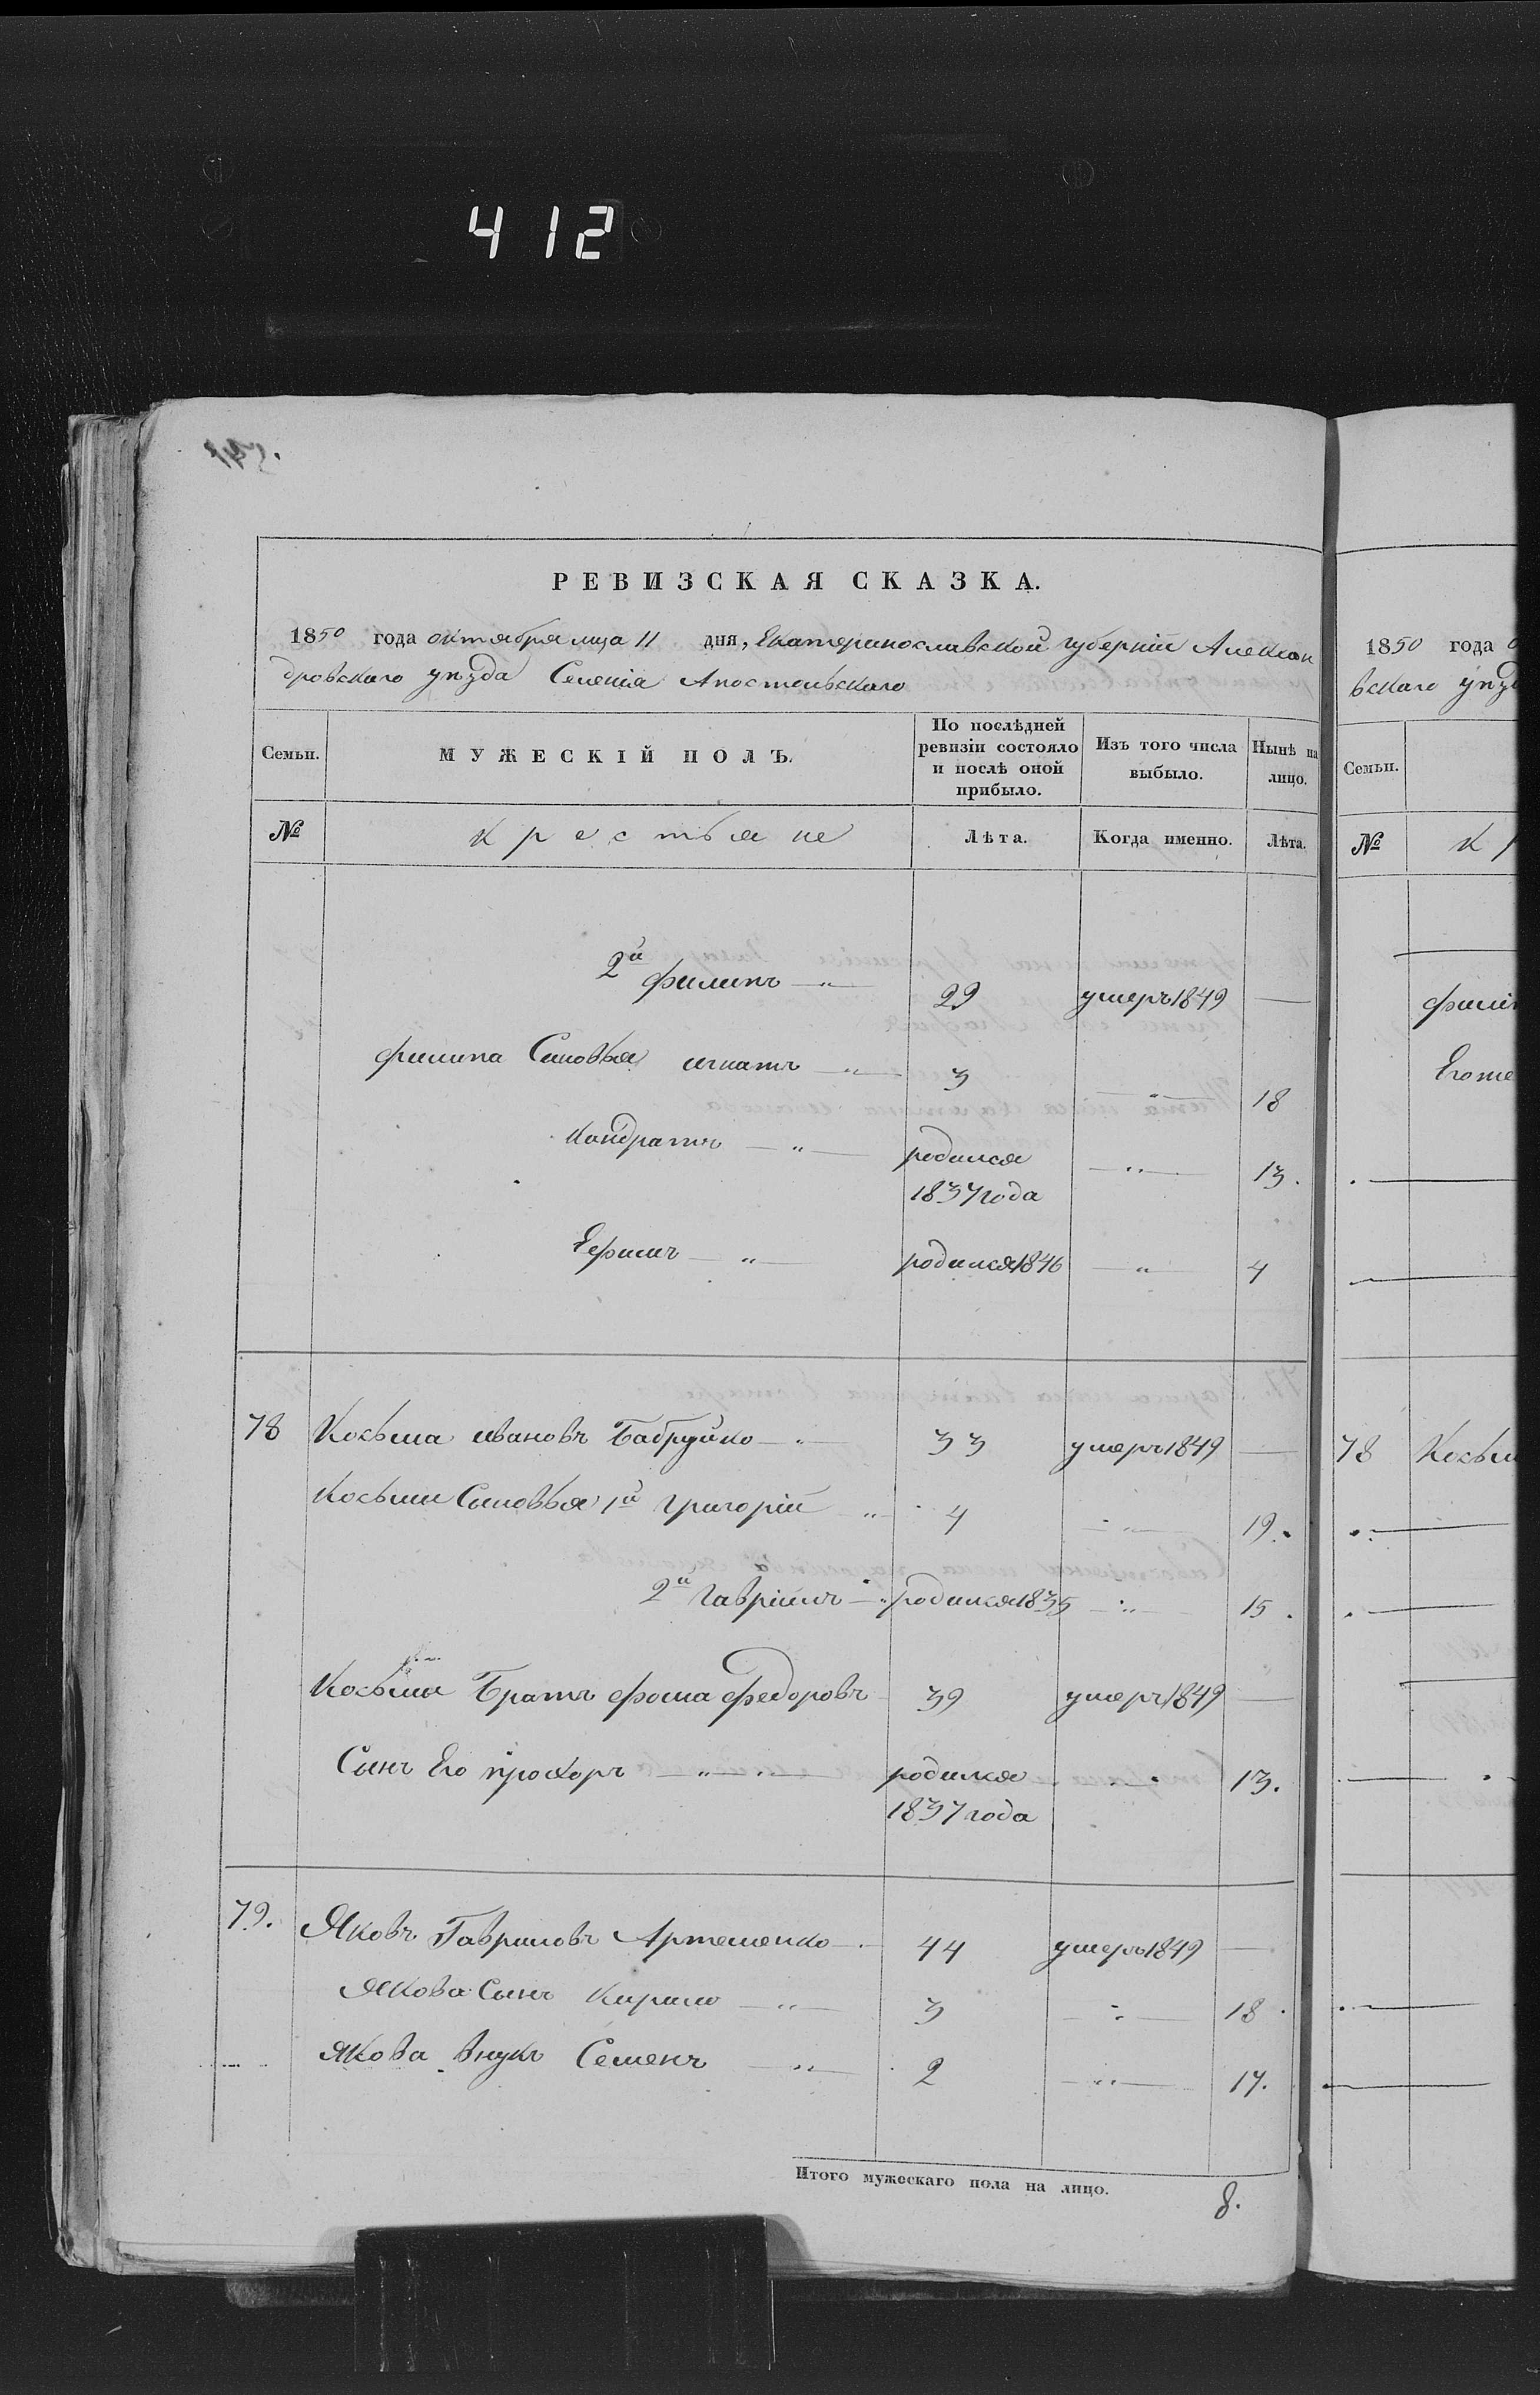 412
РЕВИЗСКАЯ СКАЗКА.
1850 года октября мца 11 дня, Екатеринославской губерніи Алексан
дровскаго уѣзда Селенія Апостольскаго
Семьи.
МУЖЕСКІЙ ПОЛЪ.
По послѣдней ревизіи состояло и послѣ оной прибыло.
Изъ того числа выбыло.
Нынѣ на лицо.
№ крестьяне Лѣта. Когда именно. Лѣта.
2й Филипъ — " — 29 умеръ 1849 —
Филипа Сыновья игнатъ — " — 3 — " — 18
Кондратъ — " — родился 1837 года — " — 13.
Ефимъ — " — родился 1846 — " — 4
78 Косьма ивановъ Бабруйко — " — 33 умеръ 1849 —
Косьми Сыновья 1й Григорій " 4 — " — 19.
2й Гавріилъ — " родился 1835 — " — 15.
Косьми Братъ Фома Федоровъ 39 умеръ 1849 —
Сынъ Его прохоръ — " — " — родился 1837 года — " 13.
79. Яковъ Гавриловъ Артеменко — 44 умеръ 1849 —
Якова Сынъ Кирило — " — 3 — " — 18
Якова внукъ Семенъ — " — 2 — " — 17.
Итого мужескаго пола на лицо. 8.
1850 года
вскаго уѣз
Семьи.
№ К р
Филип
Его же
78 Косьм